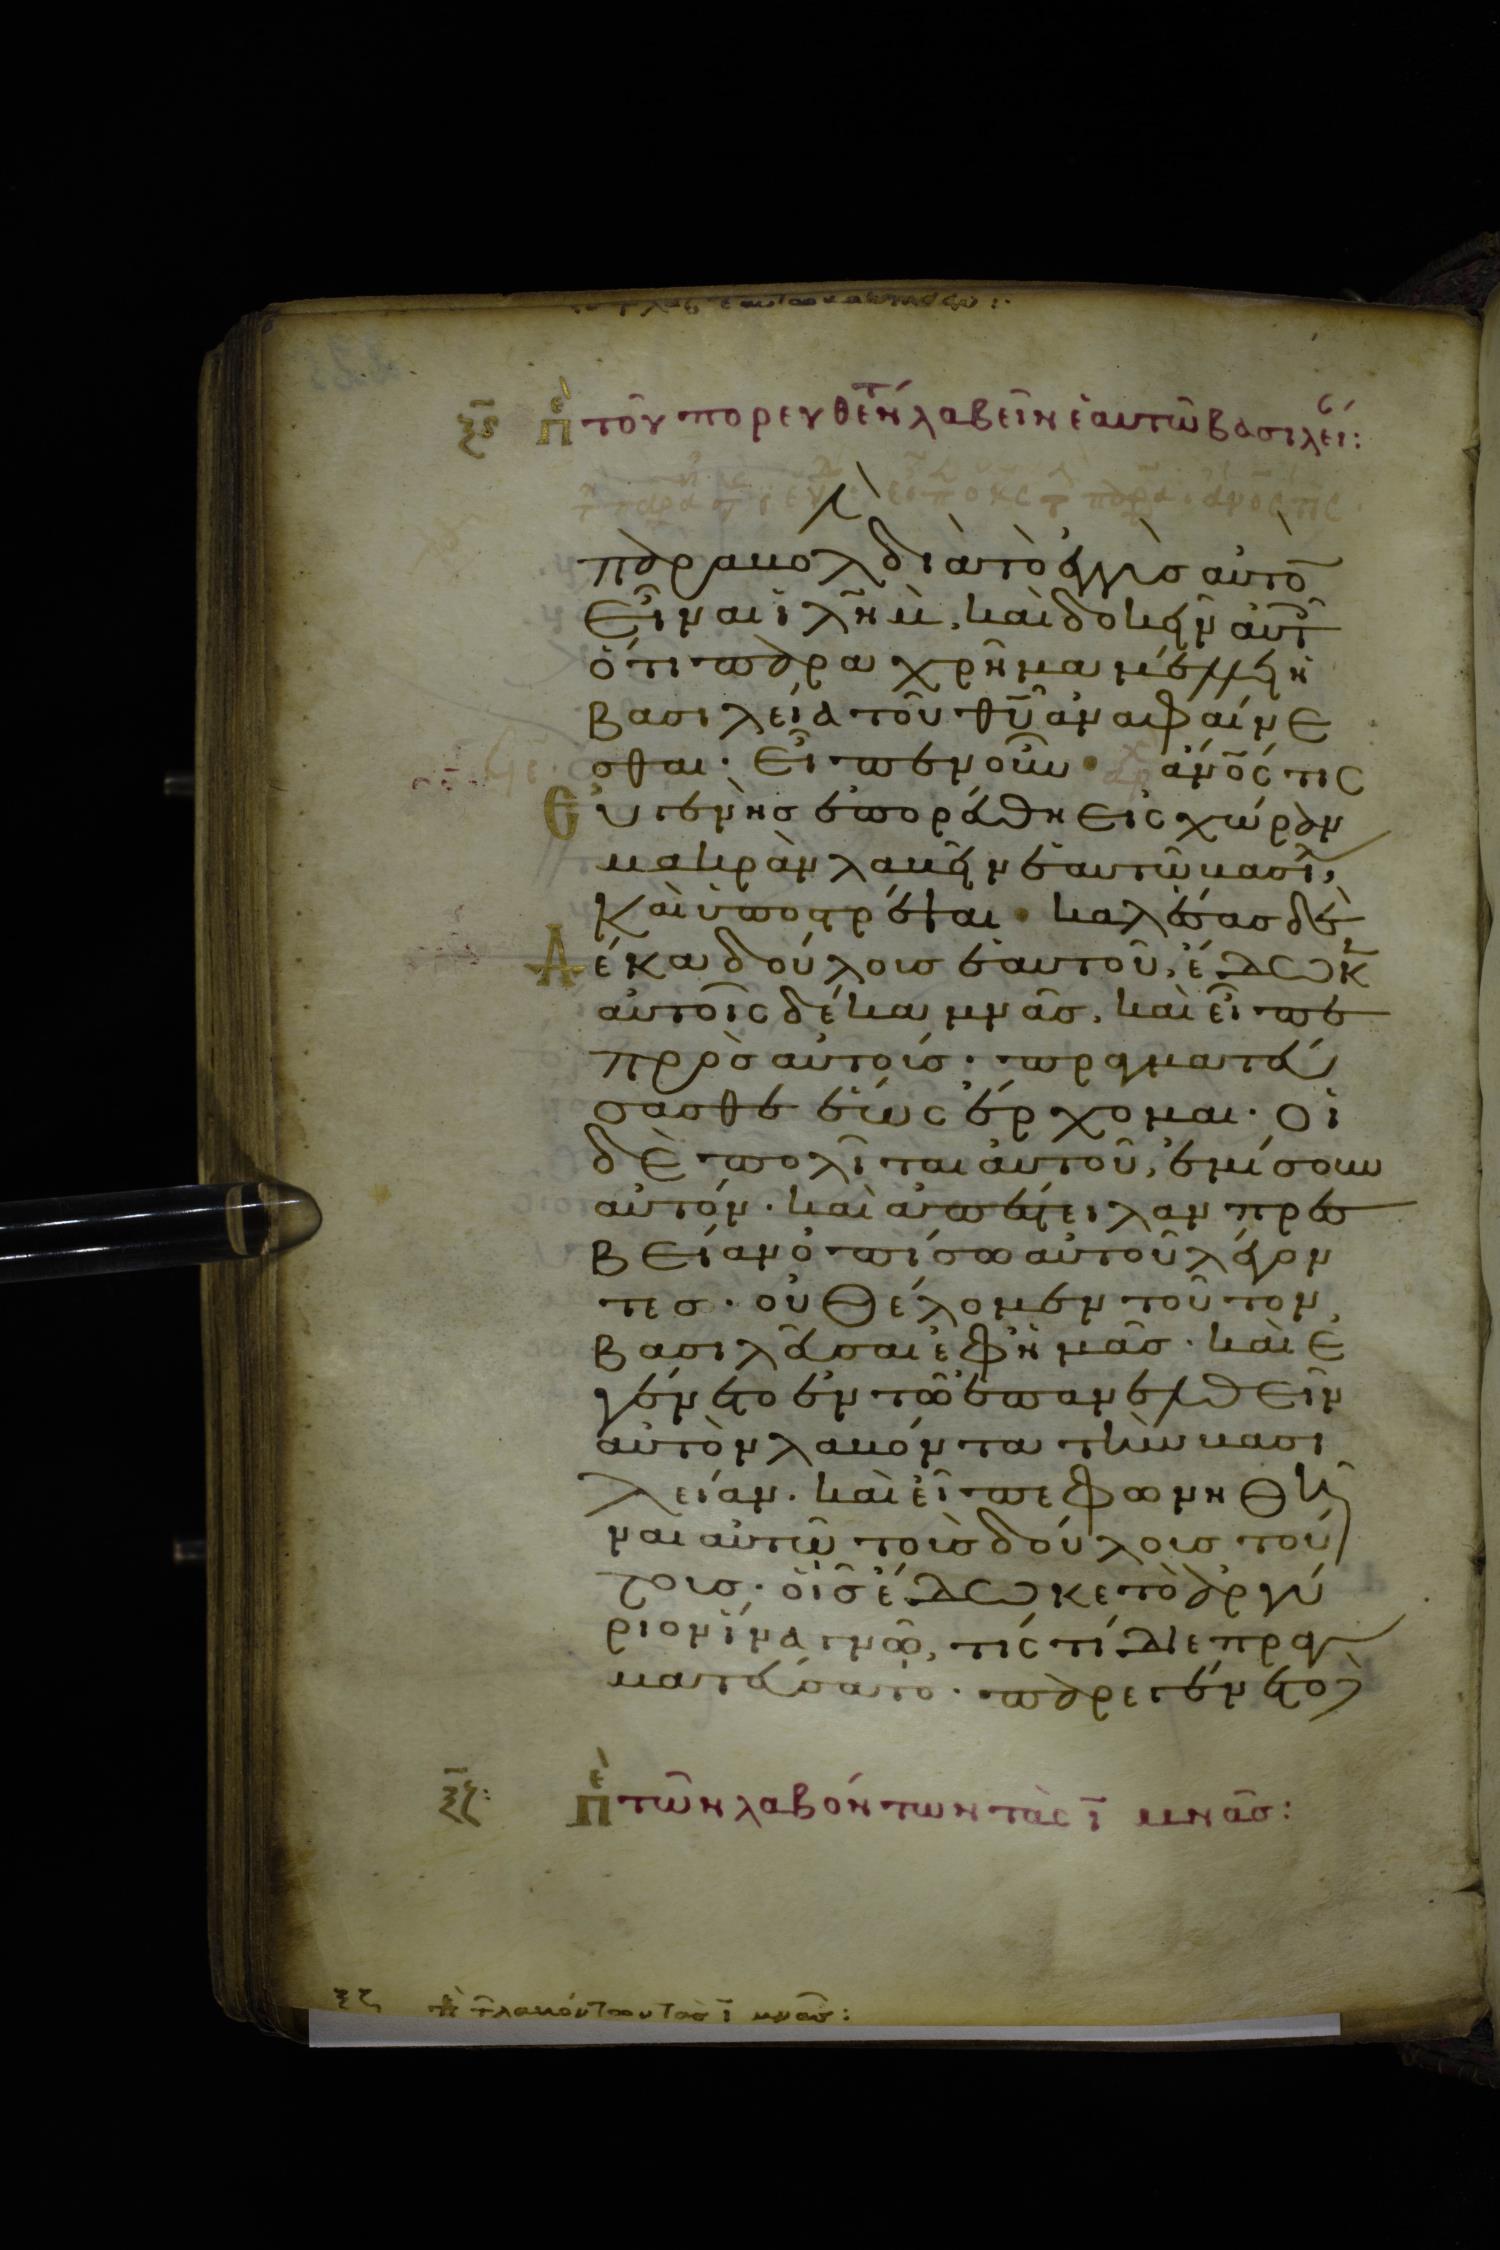 ξϛ πε τοῦ πορευθέντ λαβεῖν ἑαυτῶ βασιλεί:
παραβολ διὰ τὸ ἐγγὺσ αὐτὸ
εἶναι ἱλῆμ, καὶ δοκεῖν αὐτ
ὅτι παραχρῆμα μέλλει ἡ
βασιλεία τοῦ θῦ ἀναφαίνε
σθαι· εἶπεν οὖν ἄνος τις
εὐγενὴσ ἐπορεύθη εἰς χώραν
μακρὰν λαβεῖν ἑαυτῶ βασι,
Καὶ ὑποστρέψαι · καλέσασ δὲ
Δέκα δούλοισ ἑαυτοῦ, ἔδωκ
αὐτοῖς δέκα μνᾶσ, καὶ εἶπε
πρὸσ αὐτοίσ· πραγματεύ
σασθε ἕως ἔρχομαι· οἱ
δὲ πολῖται αὐτοῦ, ἐμίσουν
αὐτόν· καὶ ἀπέστειλαν πρεσ
βείαν ὀπίσω αὐτοῦ λέγον
τεσ· οὐ θέλομεν τοῦτον
βασιλεῦσαι ἐφ' ἡμᾶσ· καὶ ἐ
γένετο ἐν τῶ ἐπανελθεῖν
αὐτὸν λαβόντα τὴν βασι
λείαν· καὶ εἶπε φωνηθῆ
ναι αὐτῶ τοὺσ δούλοισ τού
τοισ· οἷσ ἔδωκε τὸ ἀργύ
ριον ἵνα γνῶ, τίς τί διεπραγ
ματεύσατο· παρεγένετο
ξζ: πε τῶν λαβόντων τὰς ι μνᾶσ:
ξζ πε τ λαβόντων τὰσ ι μνᾶσ: